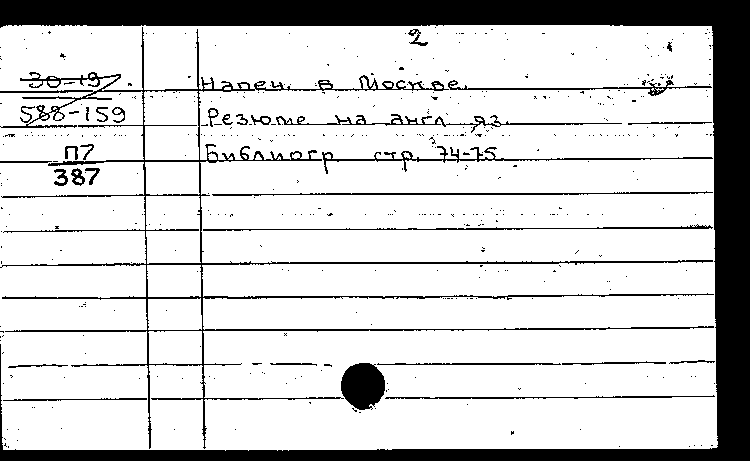 2
30-19
588-159
П7
387
Напеч. в Москве.
Резюме на англ. яз.
Библиогр. стр. 74-75